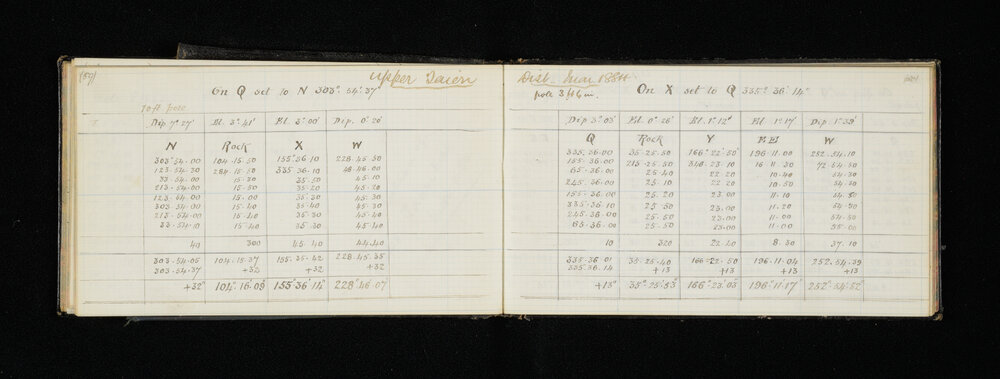 (159) Upper Taieri
On Q set to N 303° 54' 37"
10 ft pole
Dip 7° 27' El. 3° 41' El. 3° 00' Dip. 0° 20'
N Rock X W
303.54.00 104.15.50 155.36.10 228.45.50
123.54.30 284.15.50 335.36.10 48.46.00
33.54.00 15.30 35.50 45.10
213.54.00 15.50 35.20 45.20
123.54.00 15.20 35.30 45.30
303.54.00 15.40 35.40 45.30
213.54.00 15.40 35.30 45.40
33.54.10 15.40 35.30 45.40
40 300 45.40 44.40
303.54.05 104.15.37 155.35.42 228.45.35
303.54.37 +32 +32 +32
+32" 104°.16.09" 155°36'14" 228°46.07
Dist. Mar 1884
pole 3 ft 6 in. On X set to Q 335° 36' 14"
Dip 3° 03' El. 0° 26' El. 1° 12' El. 1° 17' Dip. 1° 39'
Q Rock Y EE W
335.36.00 35.25.50 166°22'.50 196.11.00 252.54.10
155.36.00 215.25.50 346.23.10 16.11.30 72.54.50
65.36.00 25.40 22.20 10.40 54.30
245.36.00 25.10 22.20 10.50 54.30
155.36.00 25.20 23.00 11.10 54.50
335.36.10 25.50 23.00 11.20 54.50
245.36.00 25.50 23.00 11.00 54.50
65.36.00 25.50 23.00 11.00 55.00
10 320 22.40 8.30 37.10
335.36.01 35.25.40 166.22.50 196.11.04 252.54.39
335°36.14 +13 +13 +13 +13
+13" 35°.25'.53" 166°.23.03 196°.11.17" 252°.54'.52"